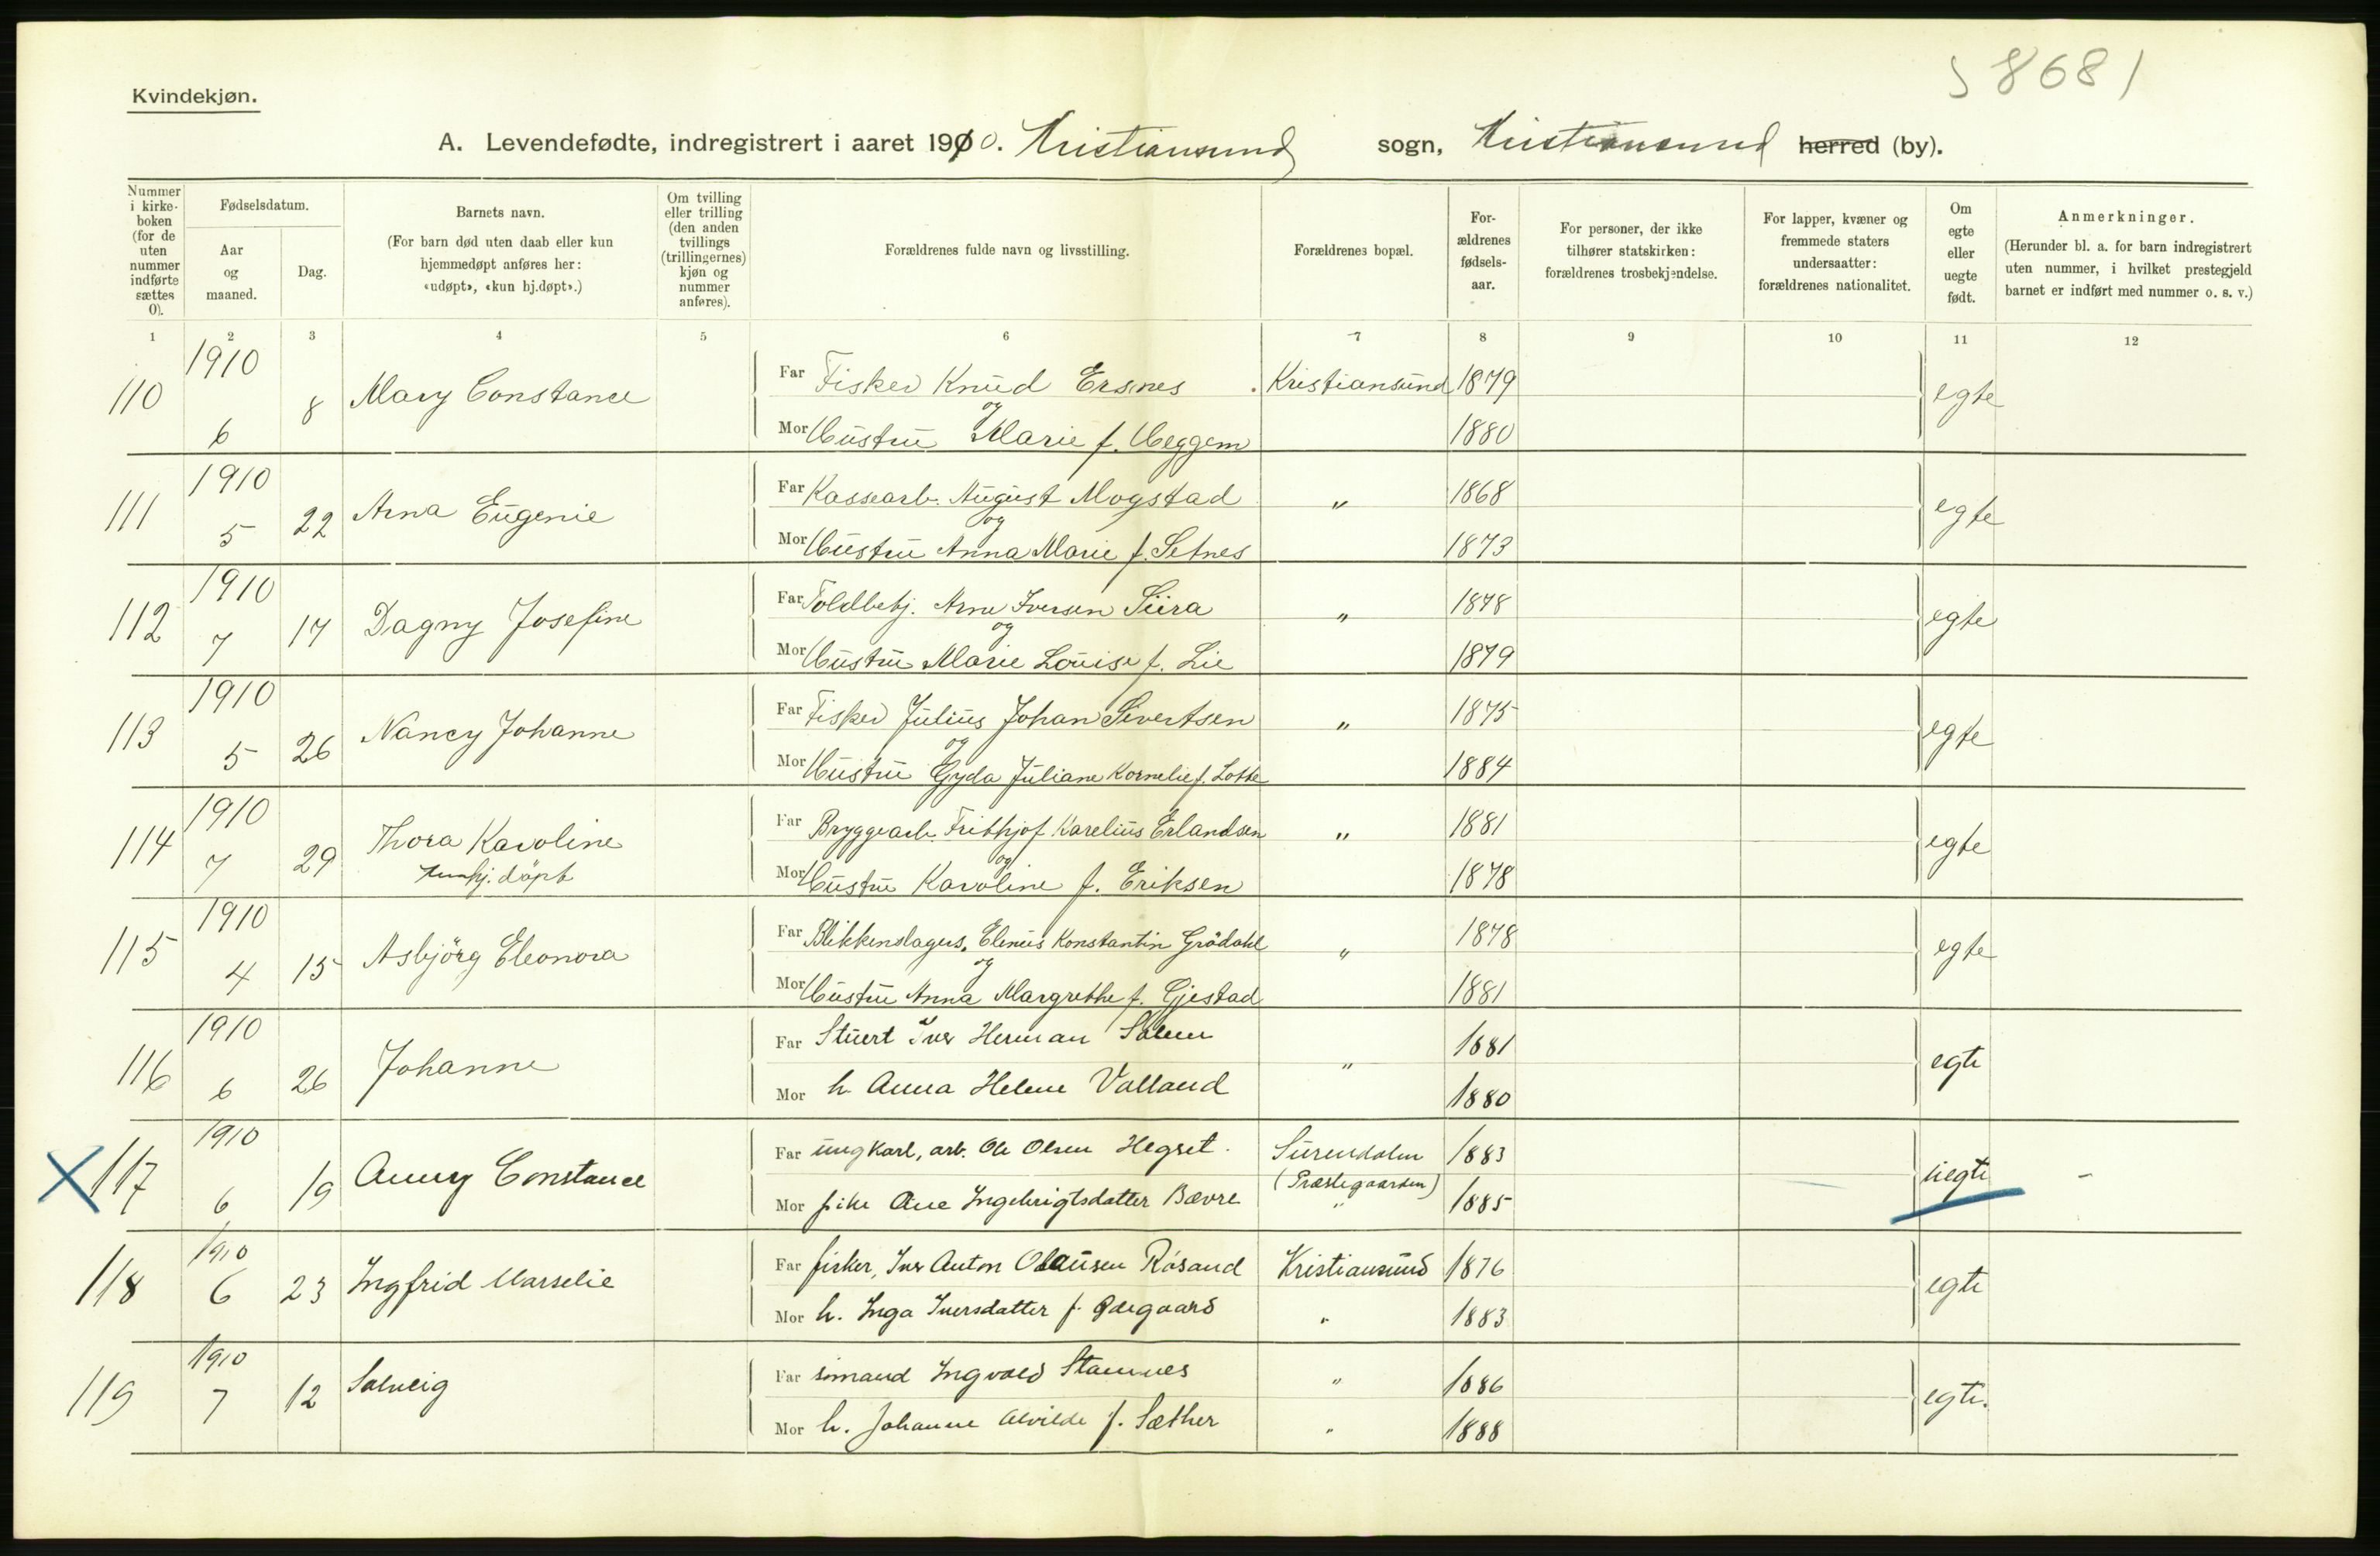 58681
Kvindekjøn.
A. Levendefødte, indregistrert i aaret 1910. Kristiansund sogn, Kristiansund herred (by).
Nummer i kirkeboken (for de uten nummer indførte sættes 0).
Fødselsdatum.
Aar og maaned.
Dag.
Barnets navn.
(For barn død uten daab eller kun hjemmedøpt anføres her: «udøpt», «kun hj.døpt».)
Om tvilling eller trilling (den anden tvillings (trillingernes) kjøn og nummer anføres).
Forældrenes fulde navn og livsstilling.
Forældrenes bopæl.
Forældrenes fødselsaar.
For personer, der ikke tilhører statskirken: forældrenes trosbekjendelse.
For lapper, kvæner og fremmede staters undersaatter: forældrenes nationalitet.
Om egte eller uegte født.
Anmerkninger.
(Herunder bl. a. for barn indregistrert uten nummer, i hvilket prestegjeld barnet er indført med nummer o. s. v.)
1 2 3 4 5 6 7 8 9 10 11 12
110 1910 6 8 Mary Constance
Far Fisker Knud Ersnes Kristiansund 1879 egte
og
Mor Hustru Marie f. Heggem 1880
111 1910 5 22 Arna Eugenie
Far Kassearb. August Mogstad " 1868 egte
og
Mor Hustru Anna Marie f. Setnes 1873
112 1910 7 17 Dagny Josefine
Far Toldbetj. Arne Iversen Siira " 1878 egte
og
Mor Hustru Marie Louise f. Lie 1879
113 1910 5 26 Nancy Johanne
Far Fisker Julius Johan Sivertsen " 1875 egte
og
Mor Hustru Gyda Juliane Kornelie f. Lothe 1884
114 1910 7 29 Thora Karoline
hj. döpt
Far Bryggearb. Frithjof Karelius Erlandsen " 1881 egte
og
Mor Hustru Karoline f. Eriksen 1878
115 1910 4 15 Asbjörg Eleonora
Far Blikkenslagers. Elenus Konstantin Grödahl " 1878 egte
og
Mor Hustru Anna Margrethe f. Gjestad 1881
116 1910 6 26 Johanne
Far Stuert Iver Herman Solem " 1881 egte
Mor h. Anna Helene Valland 1880
X 117 1910 6 19 Anny Constance
Far ungkarl, arb. Ole Olsen Hegset. Surendalen 1883 uegte -
(Præstegaarden)
Mor pike Ane Ingebrigtsdatter Bævre " 1885
118 1910 6 23 Ingfrid Marselie
Far fisker, Iver Anton Olausen Røsand Kristiansund 1876 egte
Mor h. Inga Iversdatter f. Ødegaard " 1883
119 1910 7 12 Solveig
Far sømand Ingvald Stamnes " 1886 egte.
Mor h. Johanne Alvilde f. Sæther " 1888